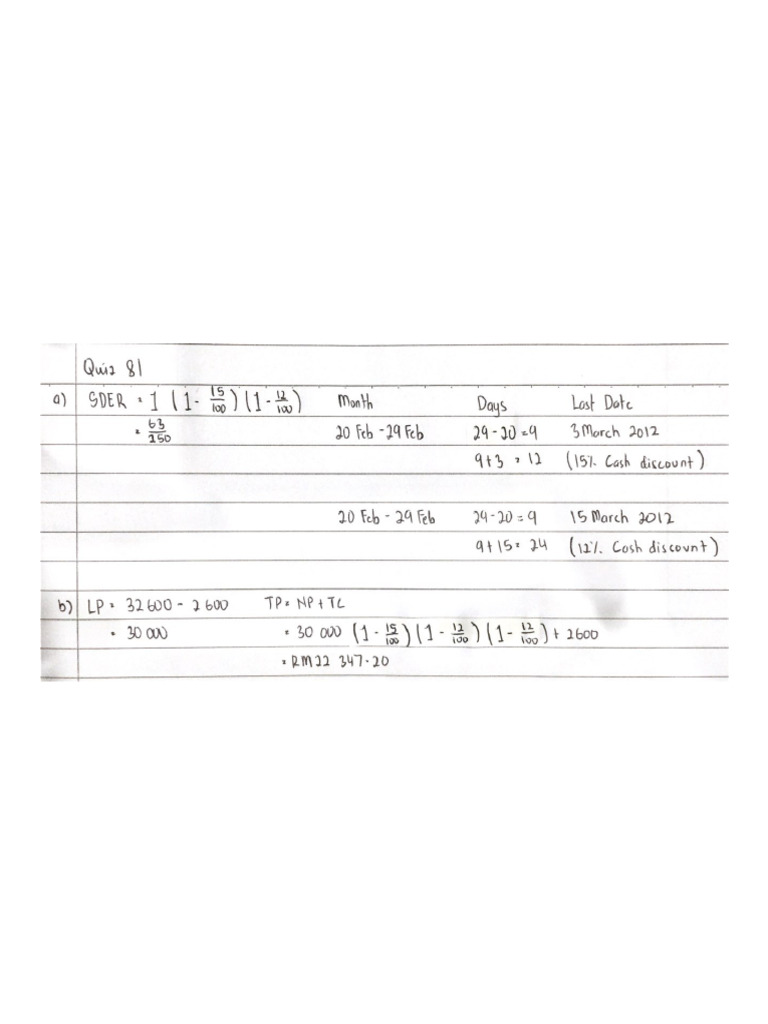 Quiz 81
a) SDER = 1 (1 - 15/100) (1 - 12/100) Month Days Last Date
= 63/250 20 Feb - 29 Feb 29 - 20 = 9 3 March 2012
9 + 3 = 12 (15% Cash discount)
20 Feb - 29 Feb 29 - 20 = 9 15 March 2012
9 + 15 = 24 (12% Cash discount)
b) LP = 32 600 - 2 600 TP = NP + TC
= 30 000 = 30 000 (1 - 15/100) (1 - 12/100) (1 - 12/100) + 2600
= RM22 347.20